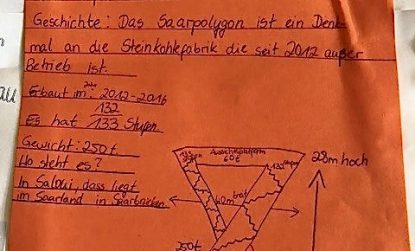 Geschichte: Das Saarpolygon ist ein Denk-
mal an die Steinkohlefabrik die seit 2012 außer
Betrieb ist.
au
Erbaut in: 2012-2016
132
Es hat 133 Stufen
Gewicht: 250t.
Wo steht es?
In Saloui, dass liegt
im Saarland in Saarbrücken.
60t
132
28m hoch
40m breit
250t